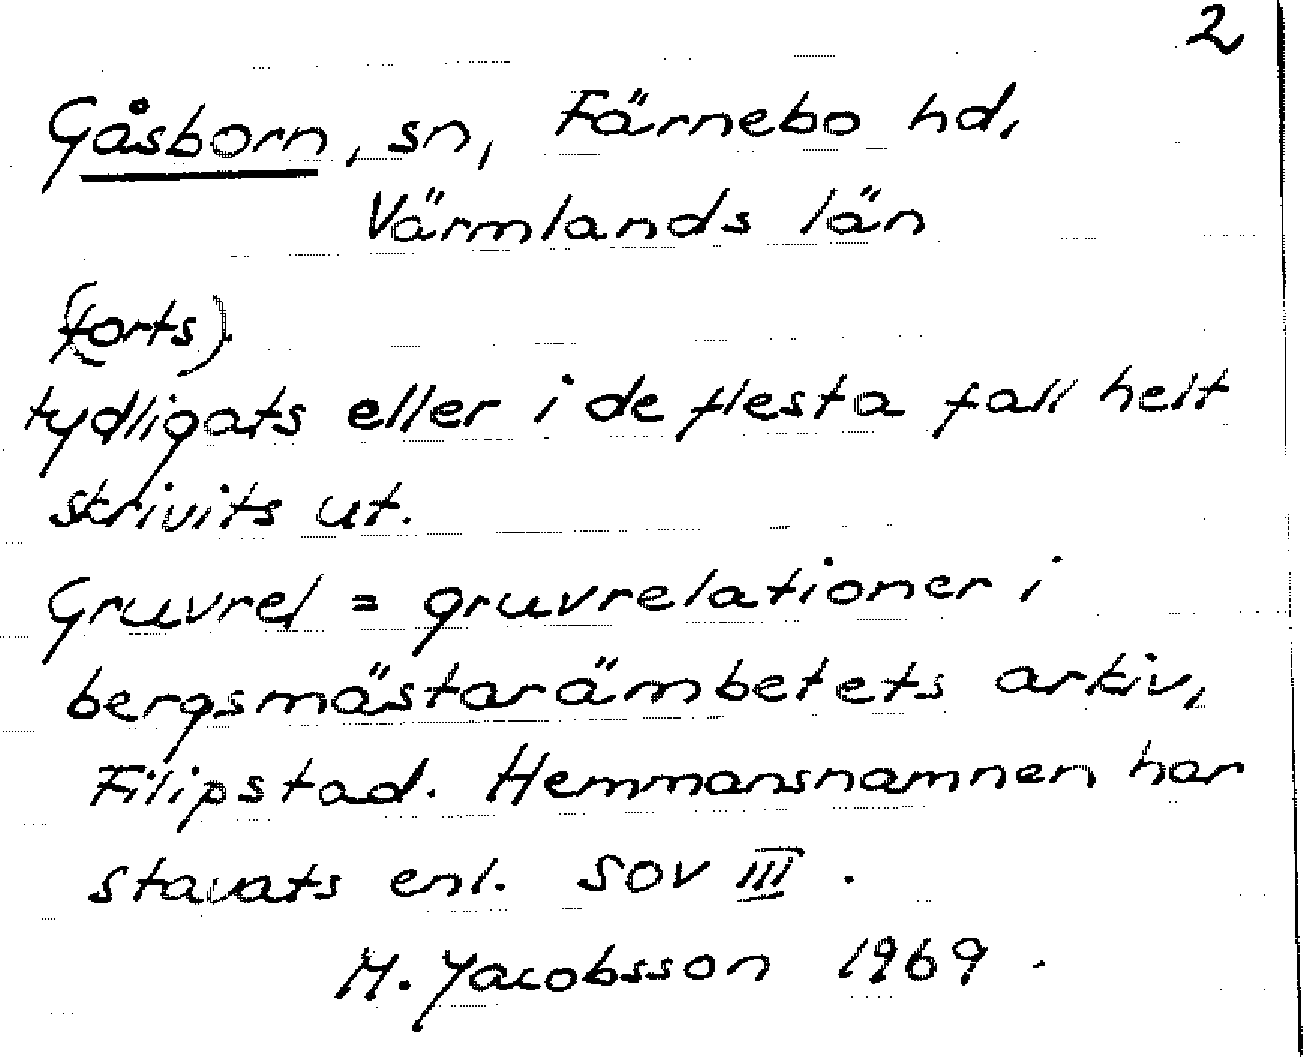 2
Gåsborn, sn, Färnebo hd,
Värmlands län
(forts)
tydligats eller i de flesta fall helt
skrivits ut.
Gruvrel = gruvrelationer i
bergsmästarämbetets arkiv,
Filipstad. Hemmansnamnen har
stavats enl. SOV III.
M. Jacobsson 1969.